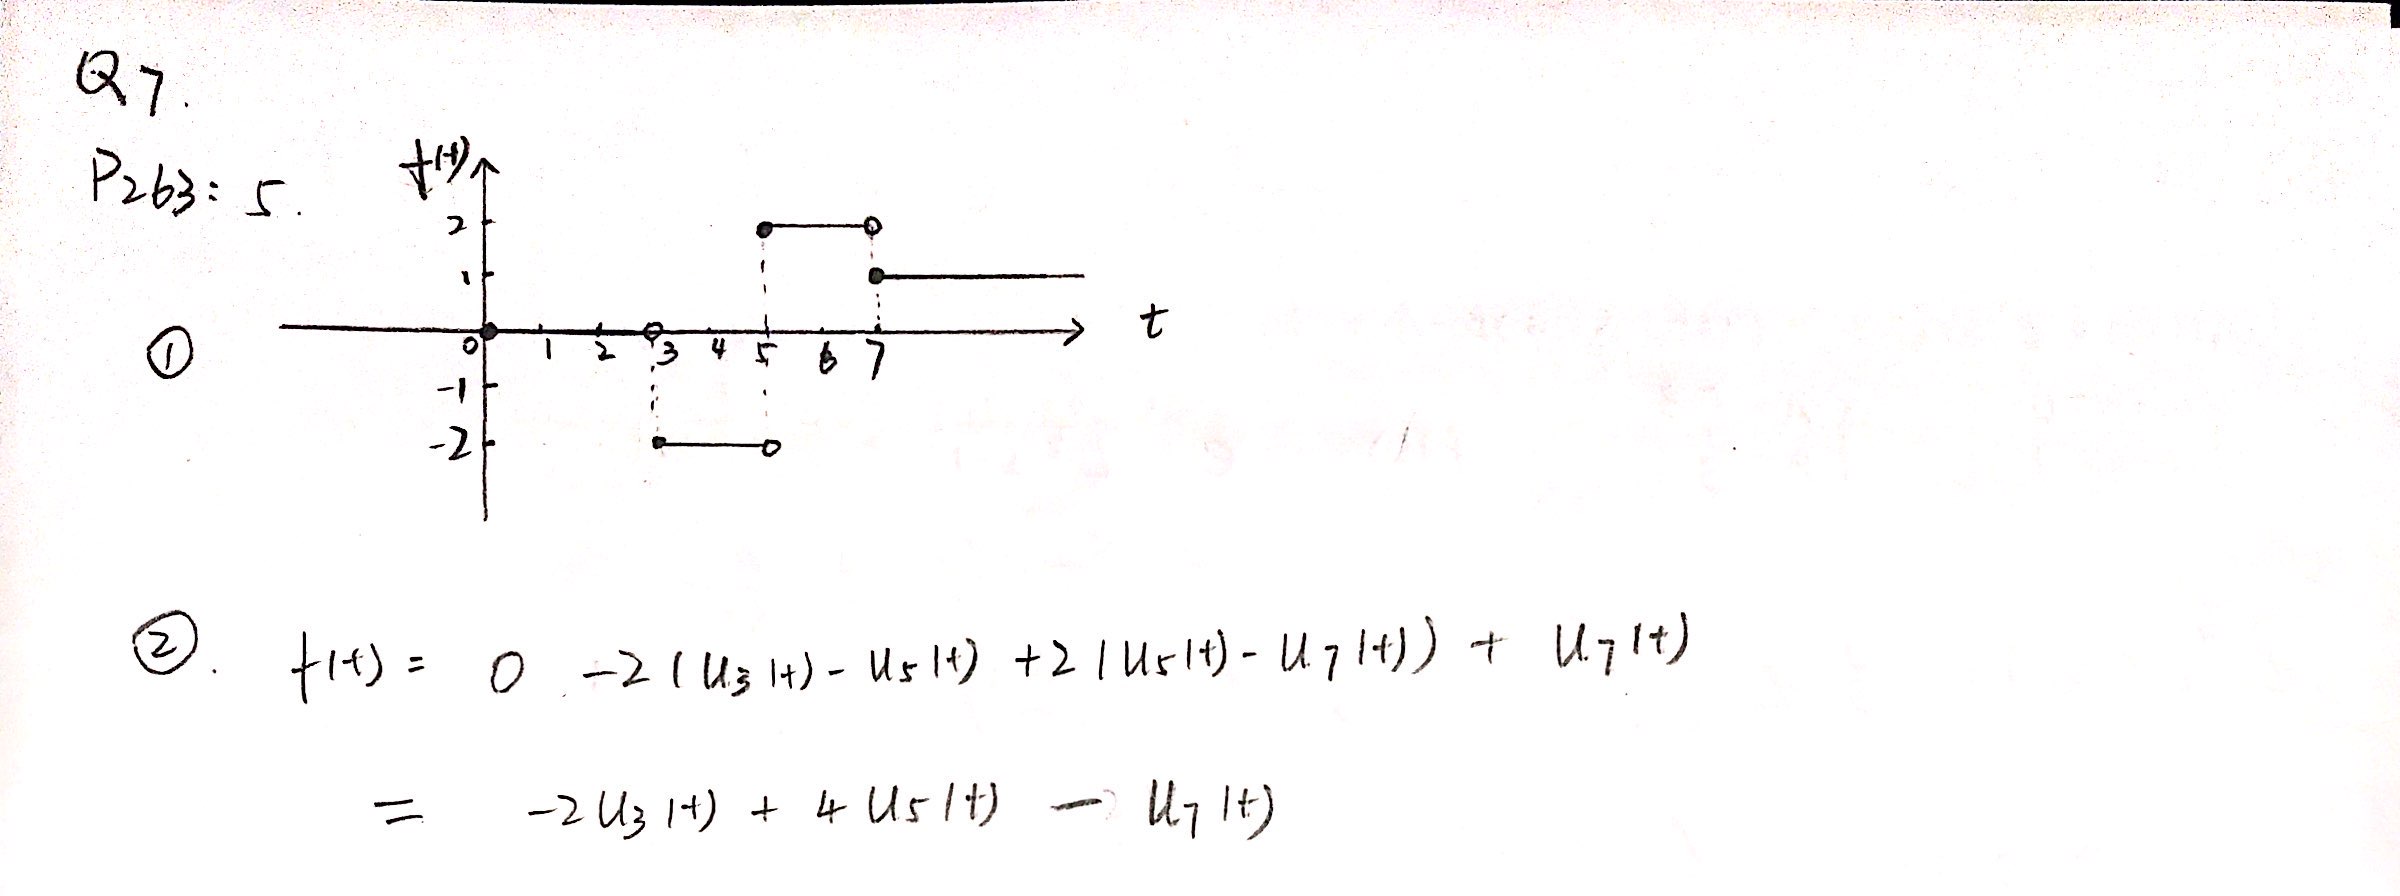 Q7.
P263: 5.
f(t)
2
1
t
①
0 1 2 3 4 5 6 7
-1
-2
②. f(t) = 0 -2(u₃(t) - u₅(t) +2(u₅(t) - u₇(t)) + u₇(t)
= -2u₃(t) + 4u₅(t) - u₇(t)